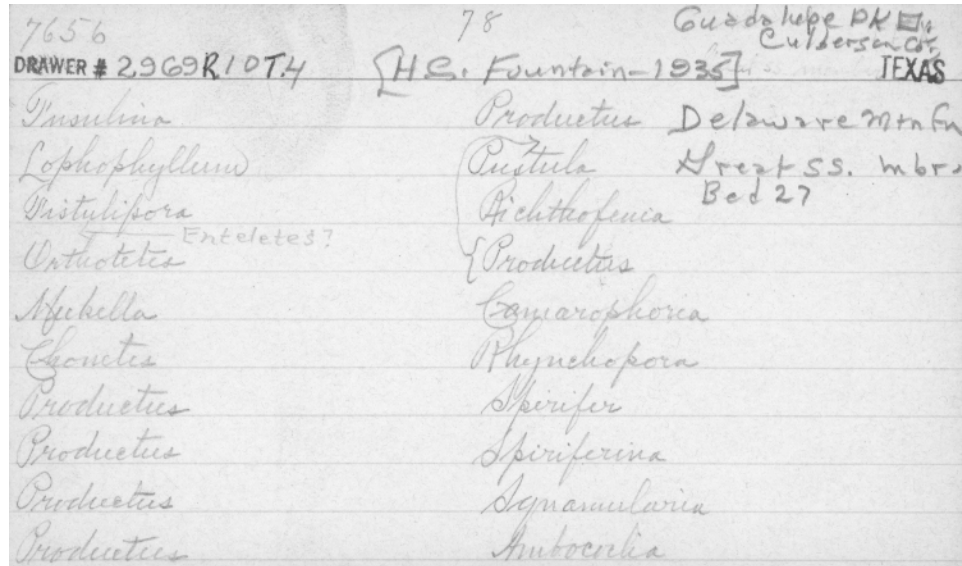 7656
78
Guadalupe PK
Culberson Co.,
DRAWER # 2969R10T.4
[H.S. Fountain-1935]
TEXAS
Fusulina
Lophophyllum
Fistulipora
Enteletes?
Orthotetes
Meekella
Chonetes
Productus
Productus
Productus
Productus
Productus
Pustula
Richthofenia
Productus
Camarophoria
Rhynchopora
Spirifer
Spiriferina
Squamularia
Ambocoelia
Delaware Mtn Fm
Great SS. mbr.
Bed 27